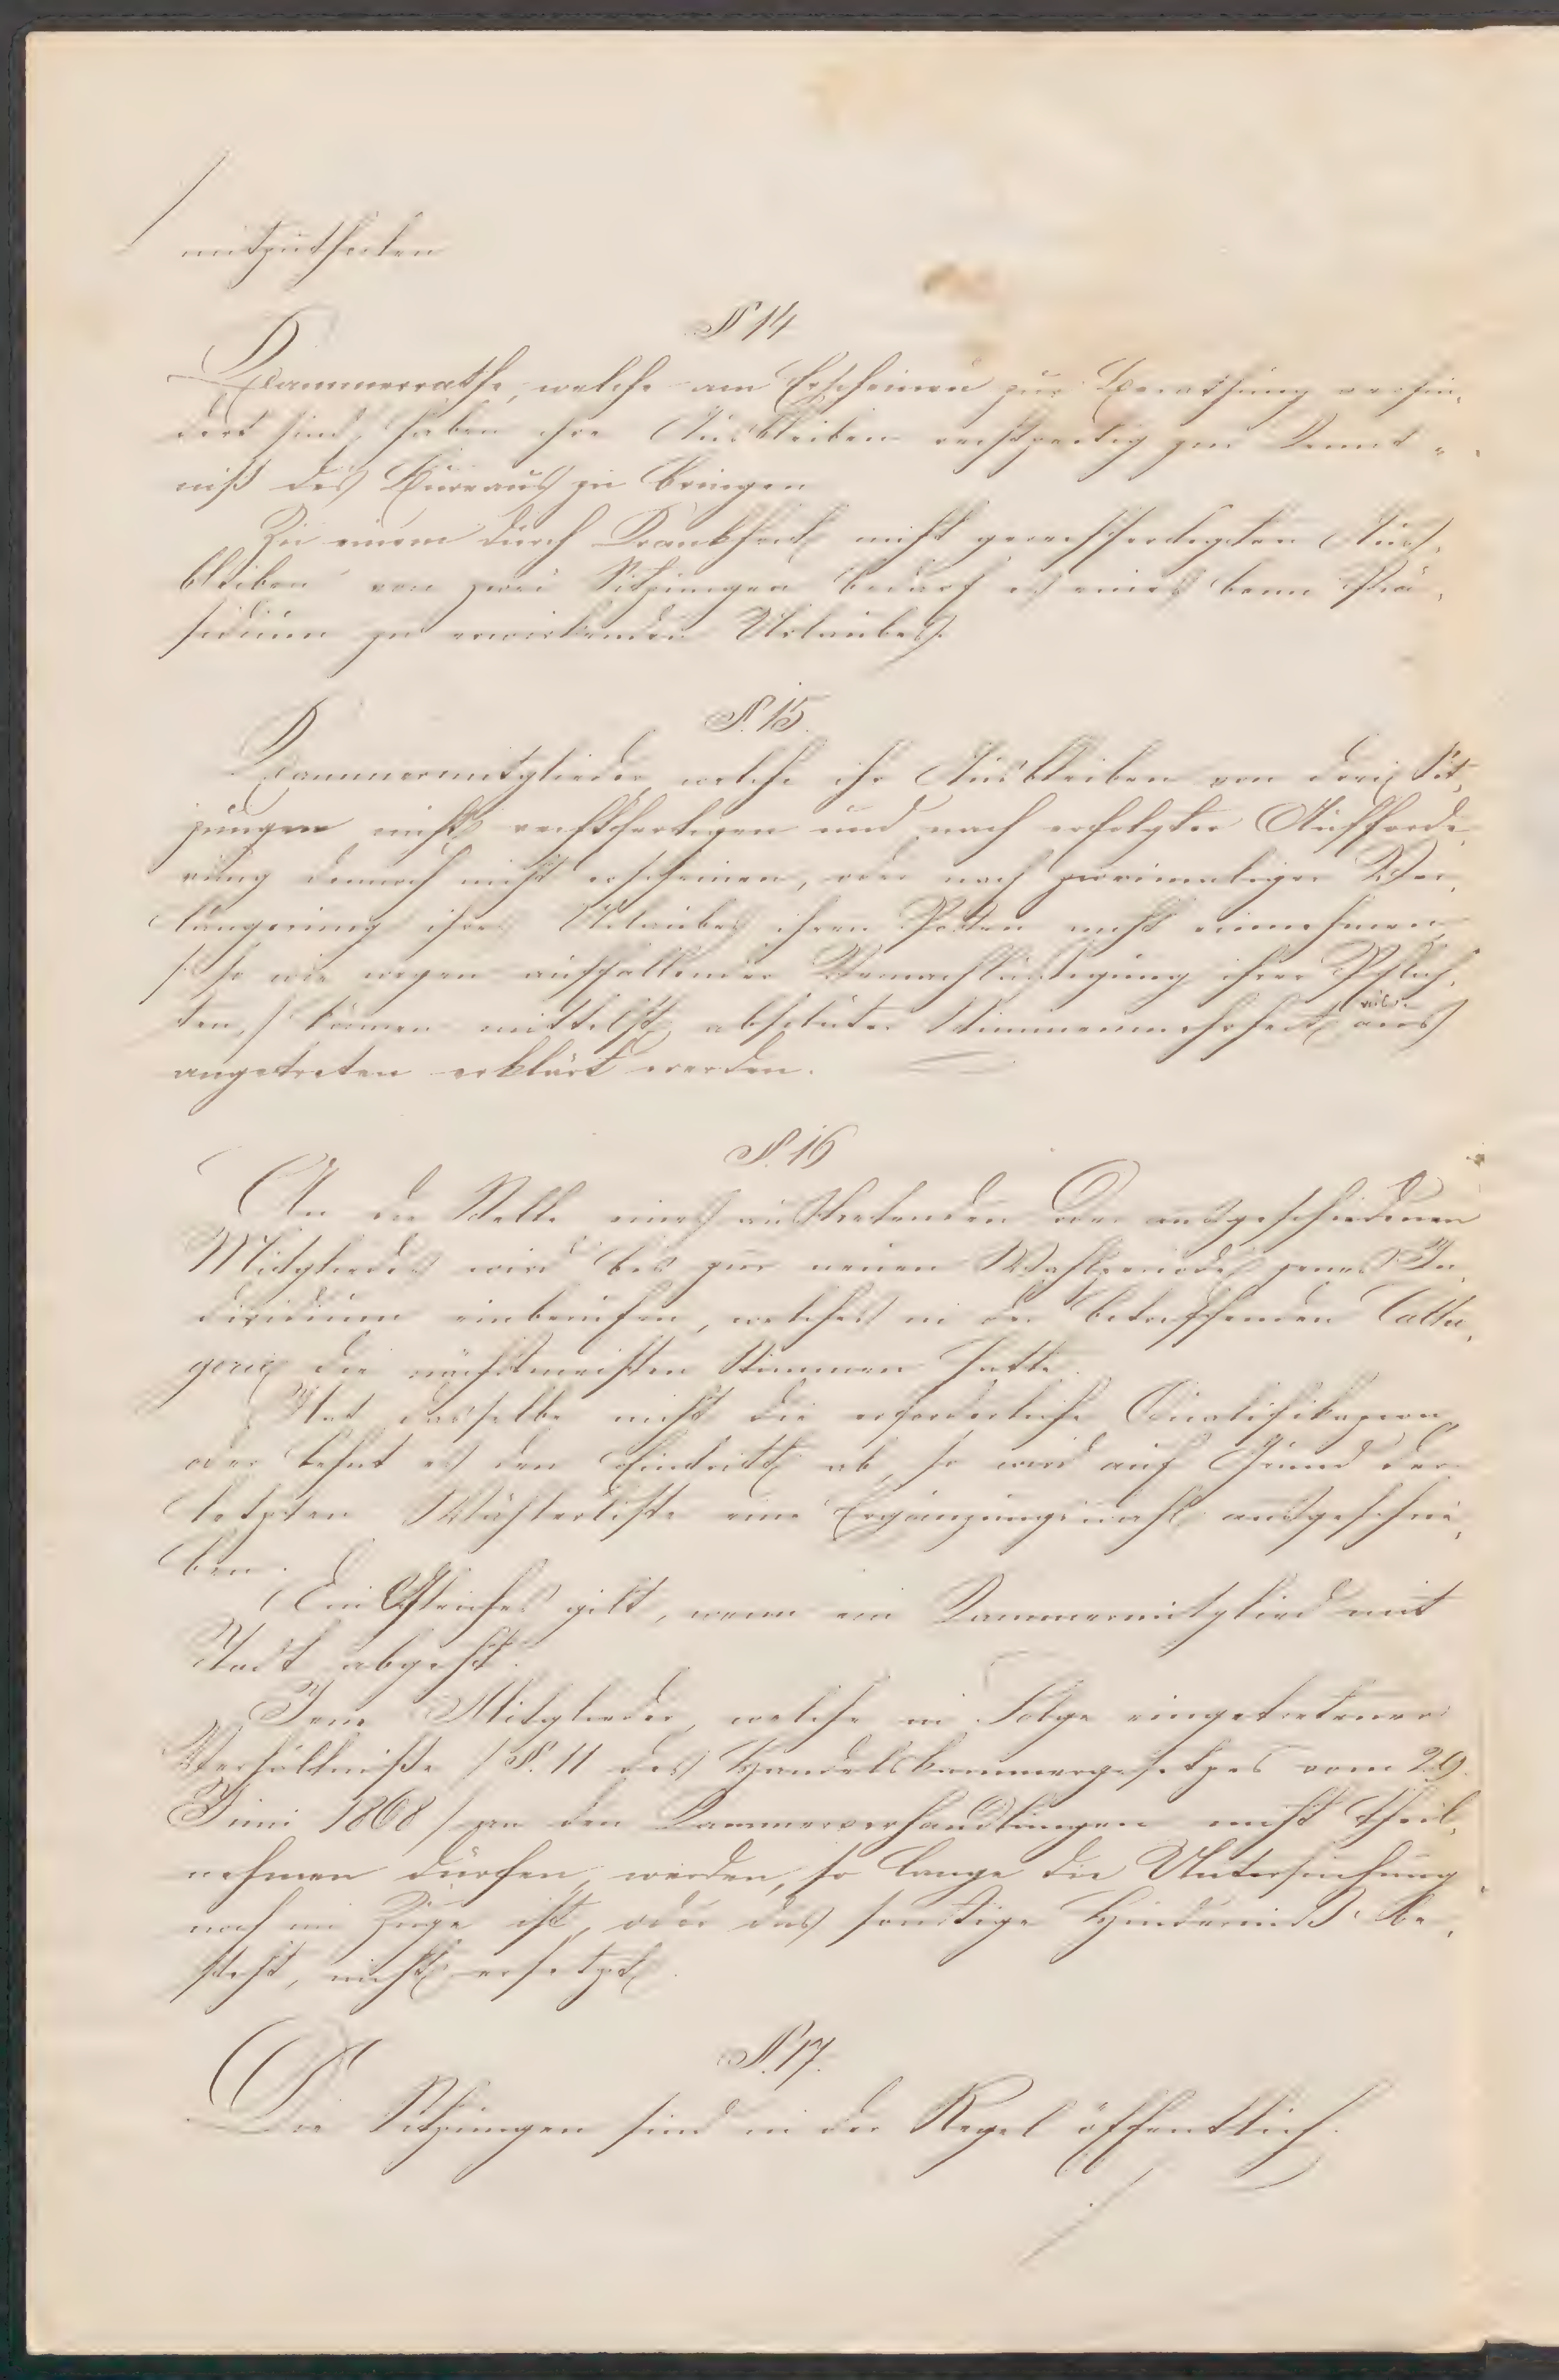 mitzutheilen
§ 14
Kammerräthe, welche am Erscheinen zur Berathung verhin„
dert sind, haben ihr Ausbleiben rechtzeitig zur Kennt„
niß des Bureaus zu bringen
Zu einem durch Krankheit nicht gerechtfertigten Aus„
bleiben von zwei Sitzungen bedarf es eines beim Prä„
sidium zu erwirkenden Urlaubes.
§. 15.
Kammermitglieder, welche ihr Ausbleiben von drei Sit„
zungen nicht rechtfertigen und nach erfolgter Aufforde„
rung dennoch nicht erscheinen, oder nach zweimaliger Ver„
längerung ihres Urlaubes ihren Posten nicht einnehmen
/: so wie wegen auffallender Vernachläßigung ihrer Pflich„
ten, / können mittelst absoluter Stimmenmehrheit als aus
angetreten erklärt werden.
§. 16
An die Stelle eines austretenden oder ausgeschiedenen
Mitgliedes wird bis zur neuen Wahlperiode jenes In„
dividuum einberufen, welches in der betreffenden Cathe„
gorie die nächstmeisten Stimmen hatte.
Hat dasselbe nicht die erforderliche Qualifikazion
oder lehnt es den Eintritt ab, so wird auf Grund der
letzten Wählerliste eine Ergänzungswahl ausgeschrie„
ben.
Ein Gleiches gilt, wenn ein Kammermitglied mit
Tod abgeht.
Jene Mitglieder, welche in Folge eingetretener
Verhältniße / §. 11 des Handelskammergesetzes vom 29.
Juni 1868 / an den Kammerverhandlungen nicht theil„
nehmen dürfen, werden, so lange die Untersuchung
noch im Zuge ist, oder das sonstige Hinderniß be„
steht, nicht ersetzt.
§. 17.
Die Sitzungen sind in der Regel öffentlich.